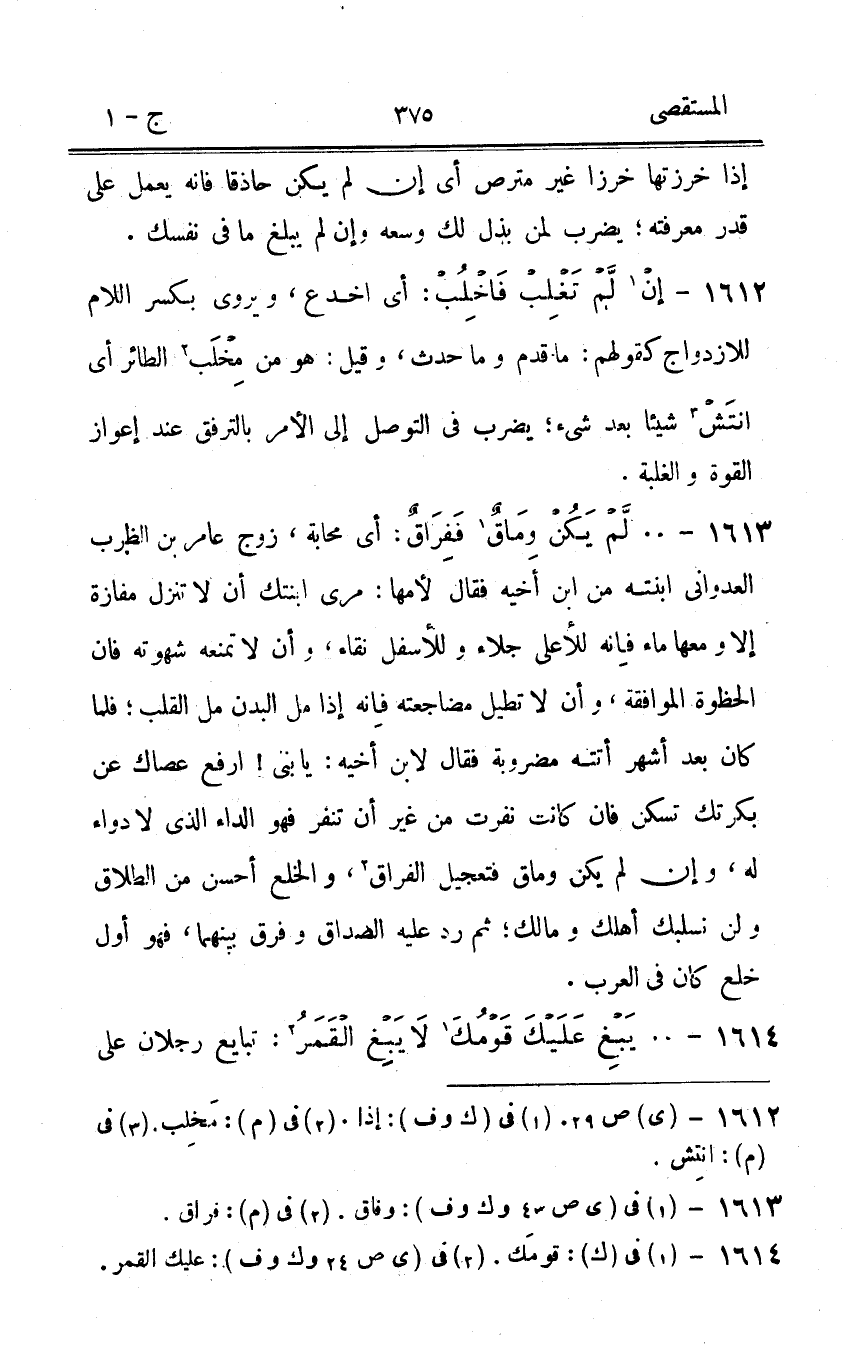 المستقصى ٣٧٥ ج - ١
إذا خرزتها خرزا غير مترص أى إن لم يكن حاذقا فانه يعمل على
قدر معرفته؛ يضرب لمن بذل لك وسعه وإن لم يبلغ ما فى نفسك .
١٦١٢ - إنْ١ لَّمْ تَغْلِبْ فَاخْلُِبْ: أى اخدع، ويروى بكسر اللام
للازدواج كقولهم: ما قدم و ما حدث، وقيل: هو من مِخْلَب٢ الطائر أى
انتَشْ٣ شيئا بعد شىء؛ يضرب فى التوصل إلى الأمر بالترفق عند إعواز
القوة و الغلبة .
١٦١٣ - .. لَّمْ يَكُنْ وِمَاقٌ١ فَفِرَاقٌ: أى محابة، زوج عامر بن الظرب
العدوانى ابنته من ابن أخيه فقال لأمها: مرى ابنتك أن لا تنزل مفازة
إلا و معها ماء فإنه للأعلى جلاء و للأسفل نقاء، و أن لا تمنعه شهوته فان
الحظوة الموافقة، و أن لا تطيل مضاجعته فإنه إذا مل البدن مل القلب؛ فلما
كان بعد أشهر أتته مضروبة فقال لابن أخيه: يا بنى! ارفع عصاك عن
بكرتك تسكن فان كانت نفرت من غير أن تنفر فهو الداء الذى لا دواء
له، و إن لم يكن وماق فتعجيل الفراق٢، و الخلع أحسن من الطلاق
و لن نسلبك أهلك و مالك؛ ثم رد عليه الصداق و فرق بينهما، فهو أول
خلع كان فى العرب .
١٦١٤ - .. يَبْغِ عَلَيْكَ قَوْمُكَ١ لَا يَبْغِ الْقَمَرُ٢: تبايع رجلان على
١٦١٢ - (ى) ص ٢٩. (١) فى (ك و ف): إذا . (٢) فى (م): مَخلِب. (٣) فى
(م): انتِش .
١٦١٣ - (١) فى (ى ص ٤٣ و ك و ف): وفاق . (٢) فى (م): فراق .
١٦١٤ - (١) فى (ك): قومَك . (٢) فى (ى ص ٢٤ و ك و ف): عليك القمر .